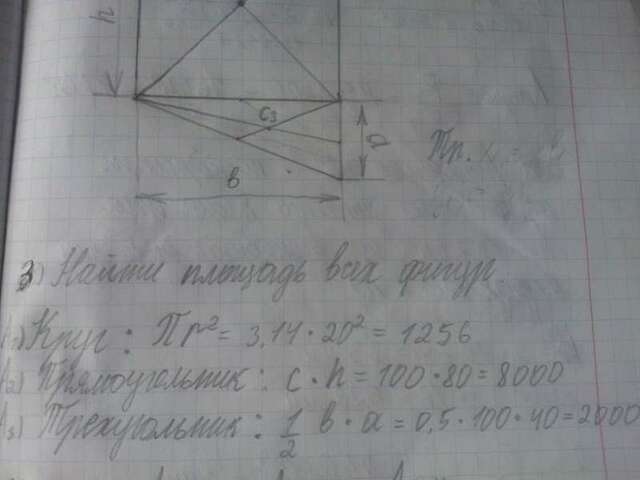 h
C₃
a
в
Пр.
3) Найти площадь всех фигур.
A₁) Круг: Пr² = 3,14 · 20² = 1256
A₂) Прямоугольник: c · h = 100 · 80 = 8000
A₃) Треугольник: 1/2 в · a = 0,5 · 100 · 40 = 2000